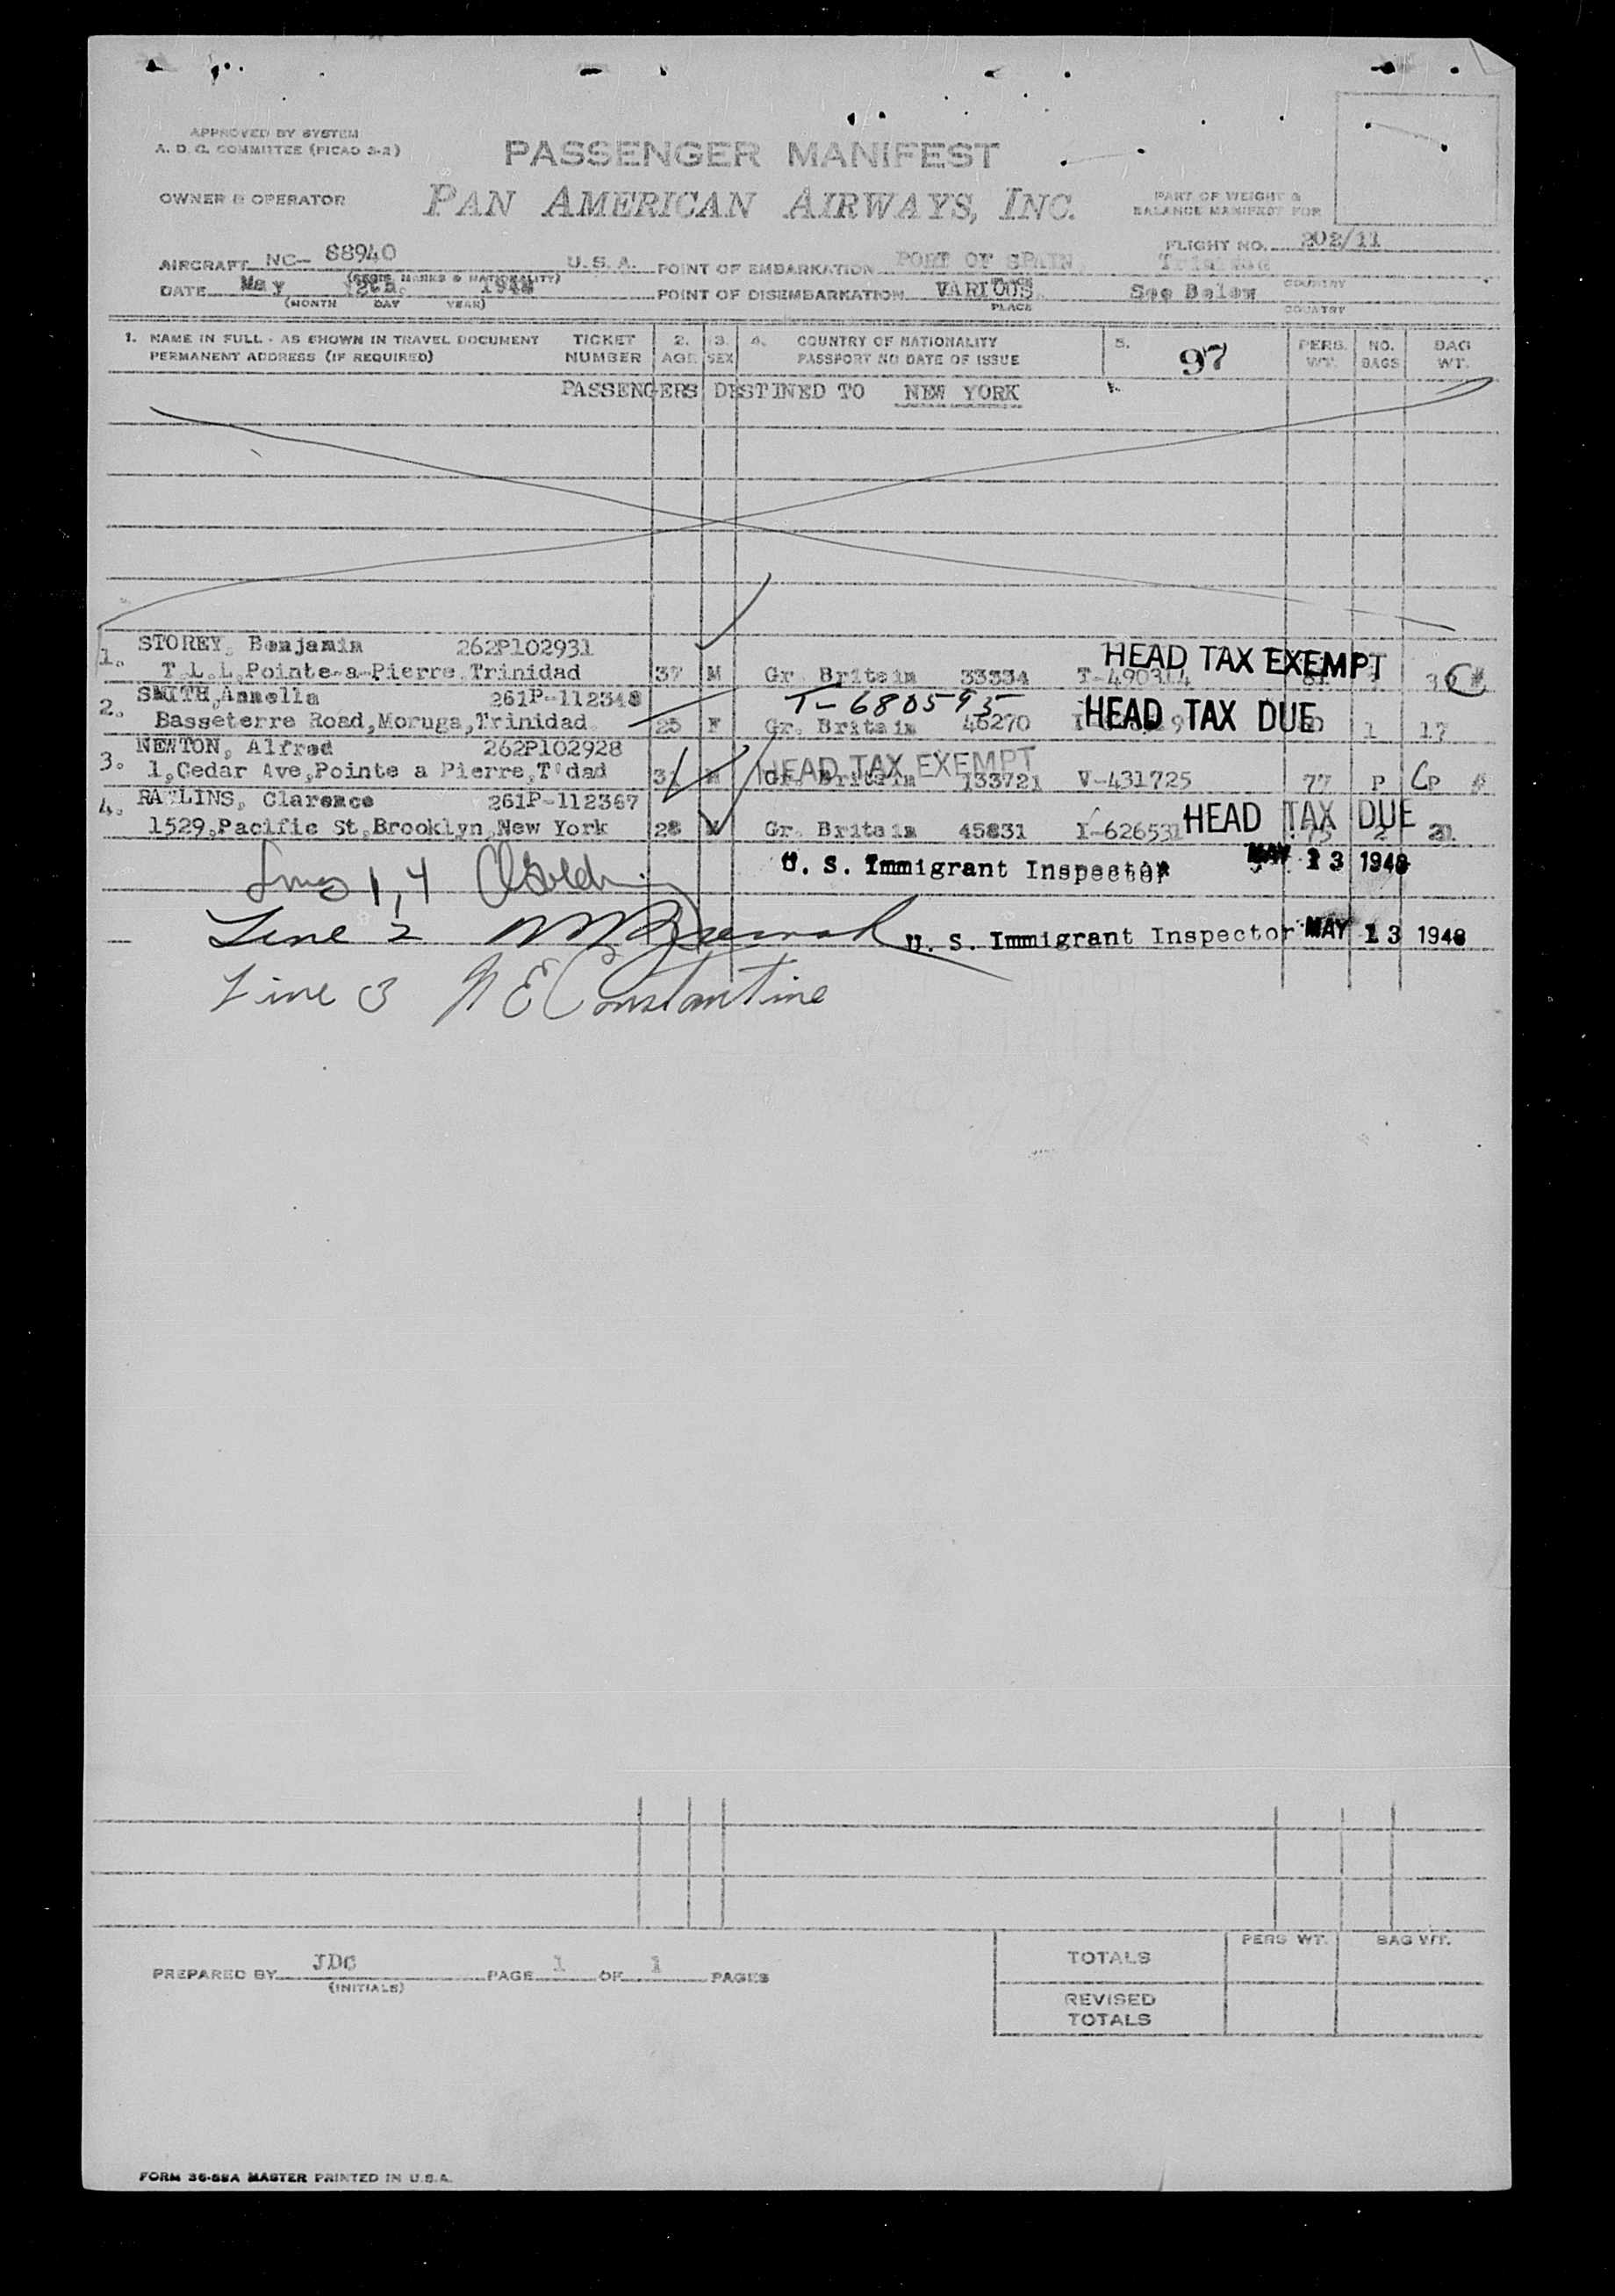 APPROVED BY SYSTEM
A. D. C. COMMITTEE (PICAO 3-2)
PASSENGER MANIFEST
OWNER & OPERATOR
PAN AMERICAN AIRWAYS, INC.
PART OF WEIGHT &
BALANCE MANIFEST FOR
FLIGHT NO. 202/11
AIRCRAFT NC- 88940 U.S.A. POINT OF EMBARKATION PORT OF SPAIN Trinidad
(REGIS. MARKS & NATIONALITY) PLACE COUNTRY
DATE May 12th. 1948 POINT OF DISEMBARKATION VARIOUS See Below
(MONTH DAY YEAR) PLACE COUNTRY
1. NAME IN FULL - AS SHOWN IN TRAVEL DOCUMENT TICKET 2. 3. 4. COUNTRY OF NATIONALITY 5. 97 PERS. NO. BAG
PERMANENT ADDRESS (IF REQUIRED) NUMBER AGE SEX PASSPORT NO DATE OF ISSUE WT. BAGS WT.
PASSENGERS DESTINED TO NEW YORK
STOREY, Benjamin 262P102931 HEAD TAX EXEMPT
1. T.L.L,Pointe-a-Pierre,Trinidad 37 M Gr. Britain 33334 T-490314
SMITH,Annella 261P-112348 T-680595 HEAD TAX DUE
2. Basseterre Road,Moruga,Trinidad. 25 F Gr. Britain 46270 1 17
NEWTON, Alfred 262P102928 HEAD TAX EXEMPT
3. 1,Cedar Ave,Pointe a Pierre,T'dad M Gr. Britain 133721 V-431725 77 P
RAWLINS, Clarence 261P-112367 HEAD TAX DUE
4. 1529,Pacific St,Brooklyn,New York 28 M Gr. Britain 45831 I-626531 75 2 21
Lines 1, 4 U. S. Immigrant Inspector MAY 13 1948
Line 2 U. S. Immigrant Inspector MAY 13 1948
Line 3 N E Constantine
PREPARED BY JDC PAGE 1 OF 1 PAGES
(INITIALS)
PERS WT. BAG WT.
TOTALS
REVISED
TOTALS
FORM 36-58A MASTER PRINTED IN U.S.A.